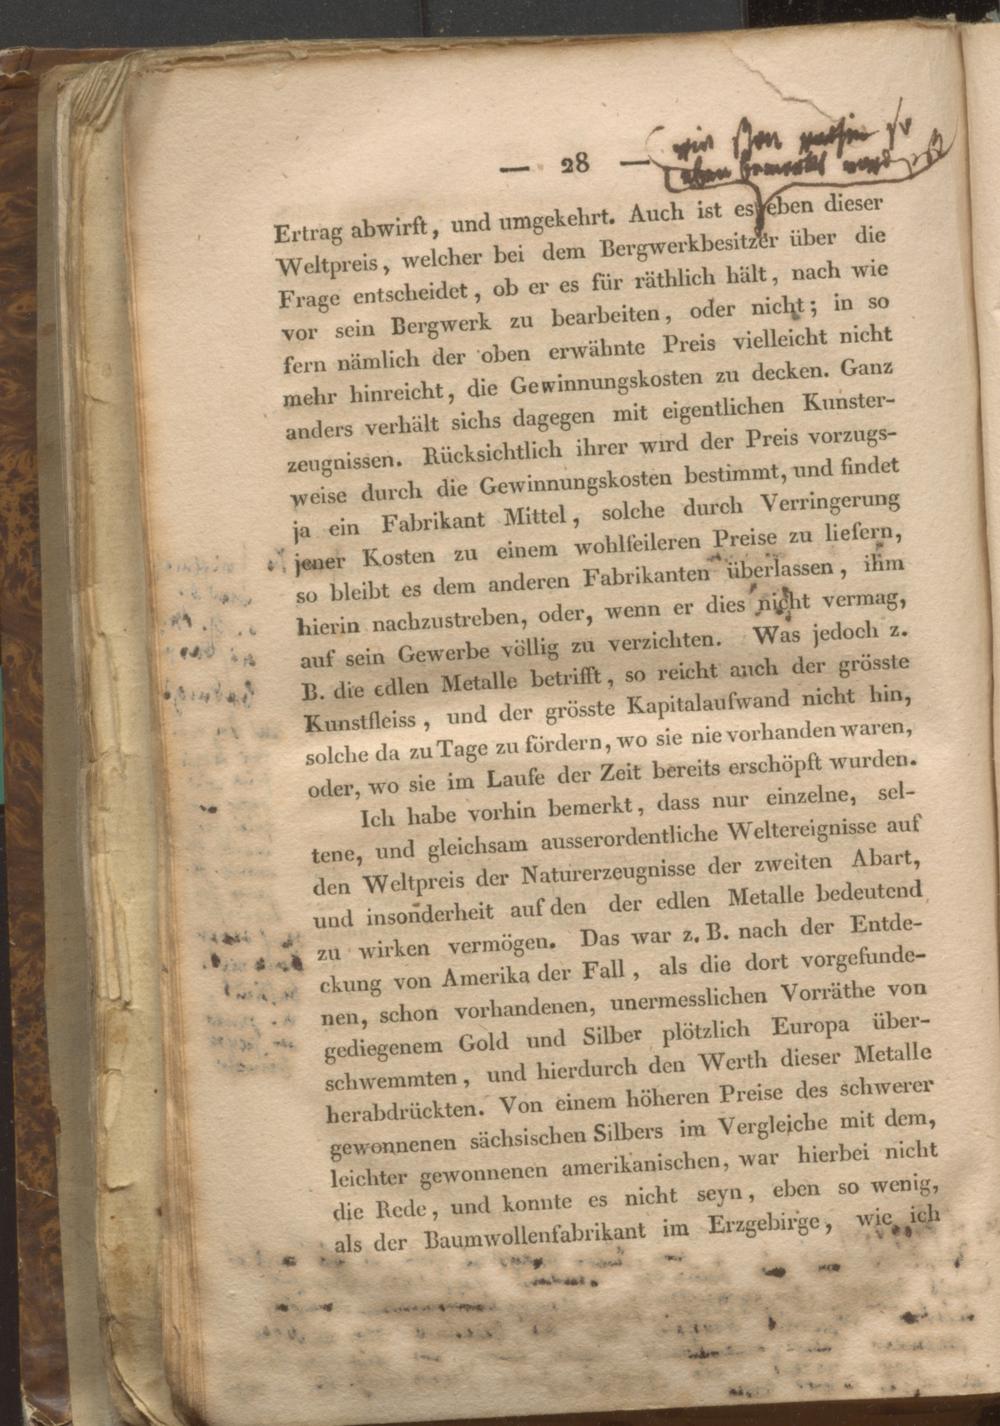 — 28 —
wie schon vorhin
oben bemerkt
Ertrag abwirft, und umgekehrt. Auch ist es eben dieser
Weltpreis, welcher bei dem Bergwerkbesitzer über die
Frage entscheidet, ob er es für räthlich hält, nach wie
vor sein Bergwerk zu bearbeiten, oder nicht; in so
fern nämlich der oben erwähnte Preis vielleicht nicht
mehr hinreicht, die Gewinnungskosten zu decken. Ganz
anders verhält sichs dagegen mit eigentlichen Kunster-
zeugnissen. Rücksichtlich ihrer wird der Preis vorzugs-
weise durch die Gewinnungskosten bestimmt, und findet
ja ein Fabrikant Mittel, solche durch Verringerung
jener Kosten zu einem wohlfeileren Preise zu liefern,
so bleibt es dem anderen Fabrikanten überlassen, ihm
hierin nachzustreben, oder, wenn er dies nicht vermag,
auf sein Gewerbe völlig zu verzichten. Was jedoch z.
B. die edlen Metalle betrifft, so reicht auch der grösste
Kunstfleiss, und der grösste Kapitalaufwand nicht hin,
solche da zu Tage zu fördern, wo sie nie vorhanden waren,
oder, wo sie im Laufe der Zeit bereits erschöpft wurden.
Ich habe vorhin bemerkt, dass nur einzelne, sel-
tene, und gleichsam ausserordentliche Weltereignisse auf
den Weltpreis der Naturerzeugnisse der zweiten Abart,
und insonderheit auf den der edlen Metalle bedeutend
zu wirken vermögen. Das war z. B. nach der Entde-
ckung von Amerika der Fall, als die dort vorgefunde-
nen, schon vorhandenen, unermesslichen Vorräthe von
gediegenem Gold und Silber plötzlich Europa über-
schwemmten, und hierdurch den Werth dieser Metalle
herabdrückten. Von einem höheren Preise des schwerer
gewonnenen sächsischen Silbers im Vergleiche mit dem,
leichter gewonnenen amerikanischen, war hierbei nicht
die Rede, und konnte es nicht seyn, eben so wenig,
als der Baumwollenfabrikant im Erzgebirge, wie ich